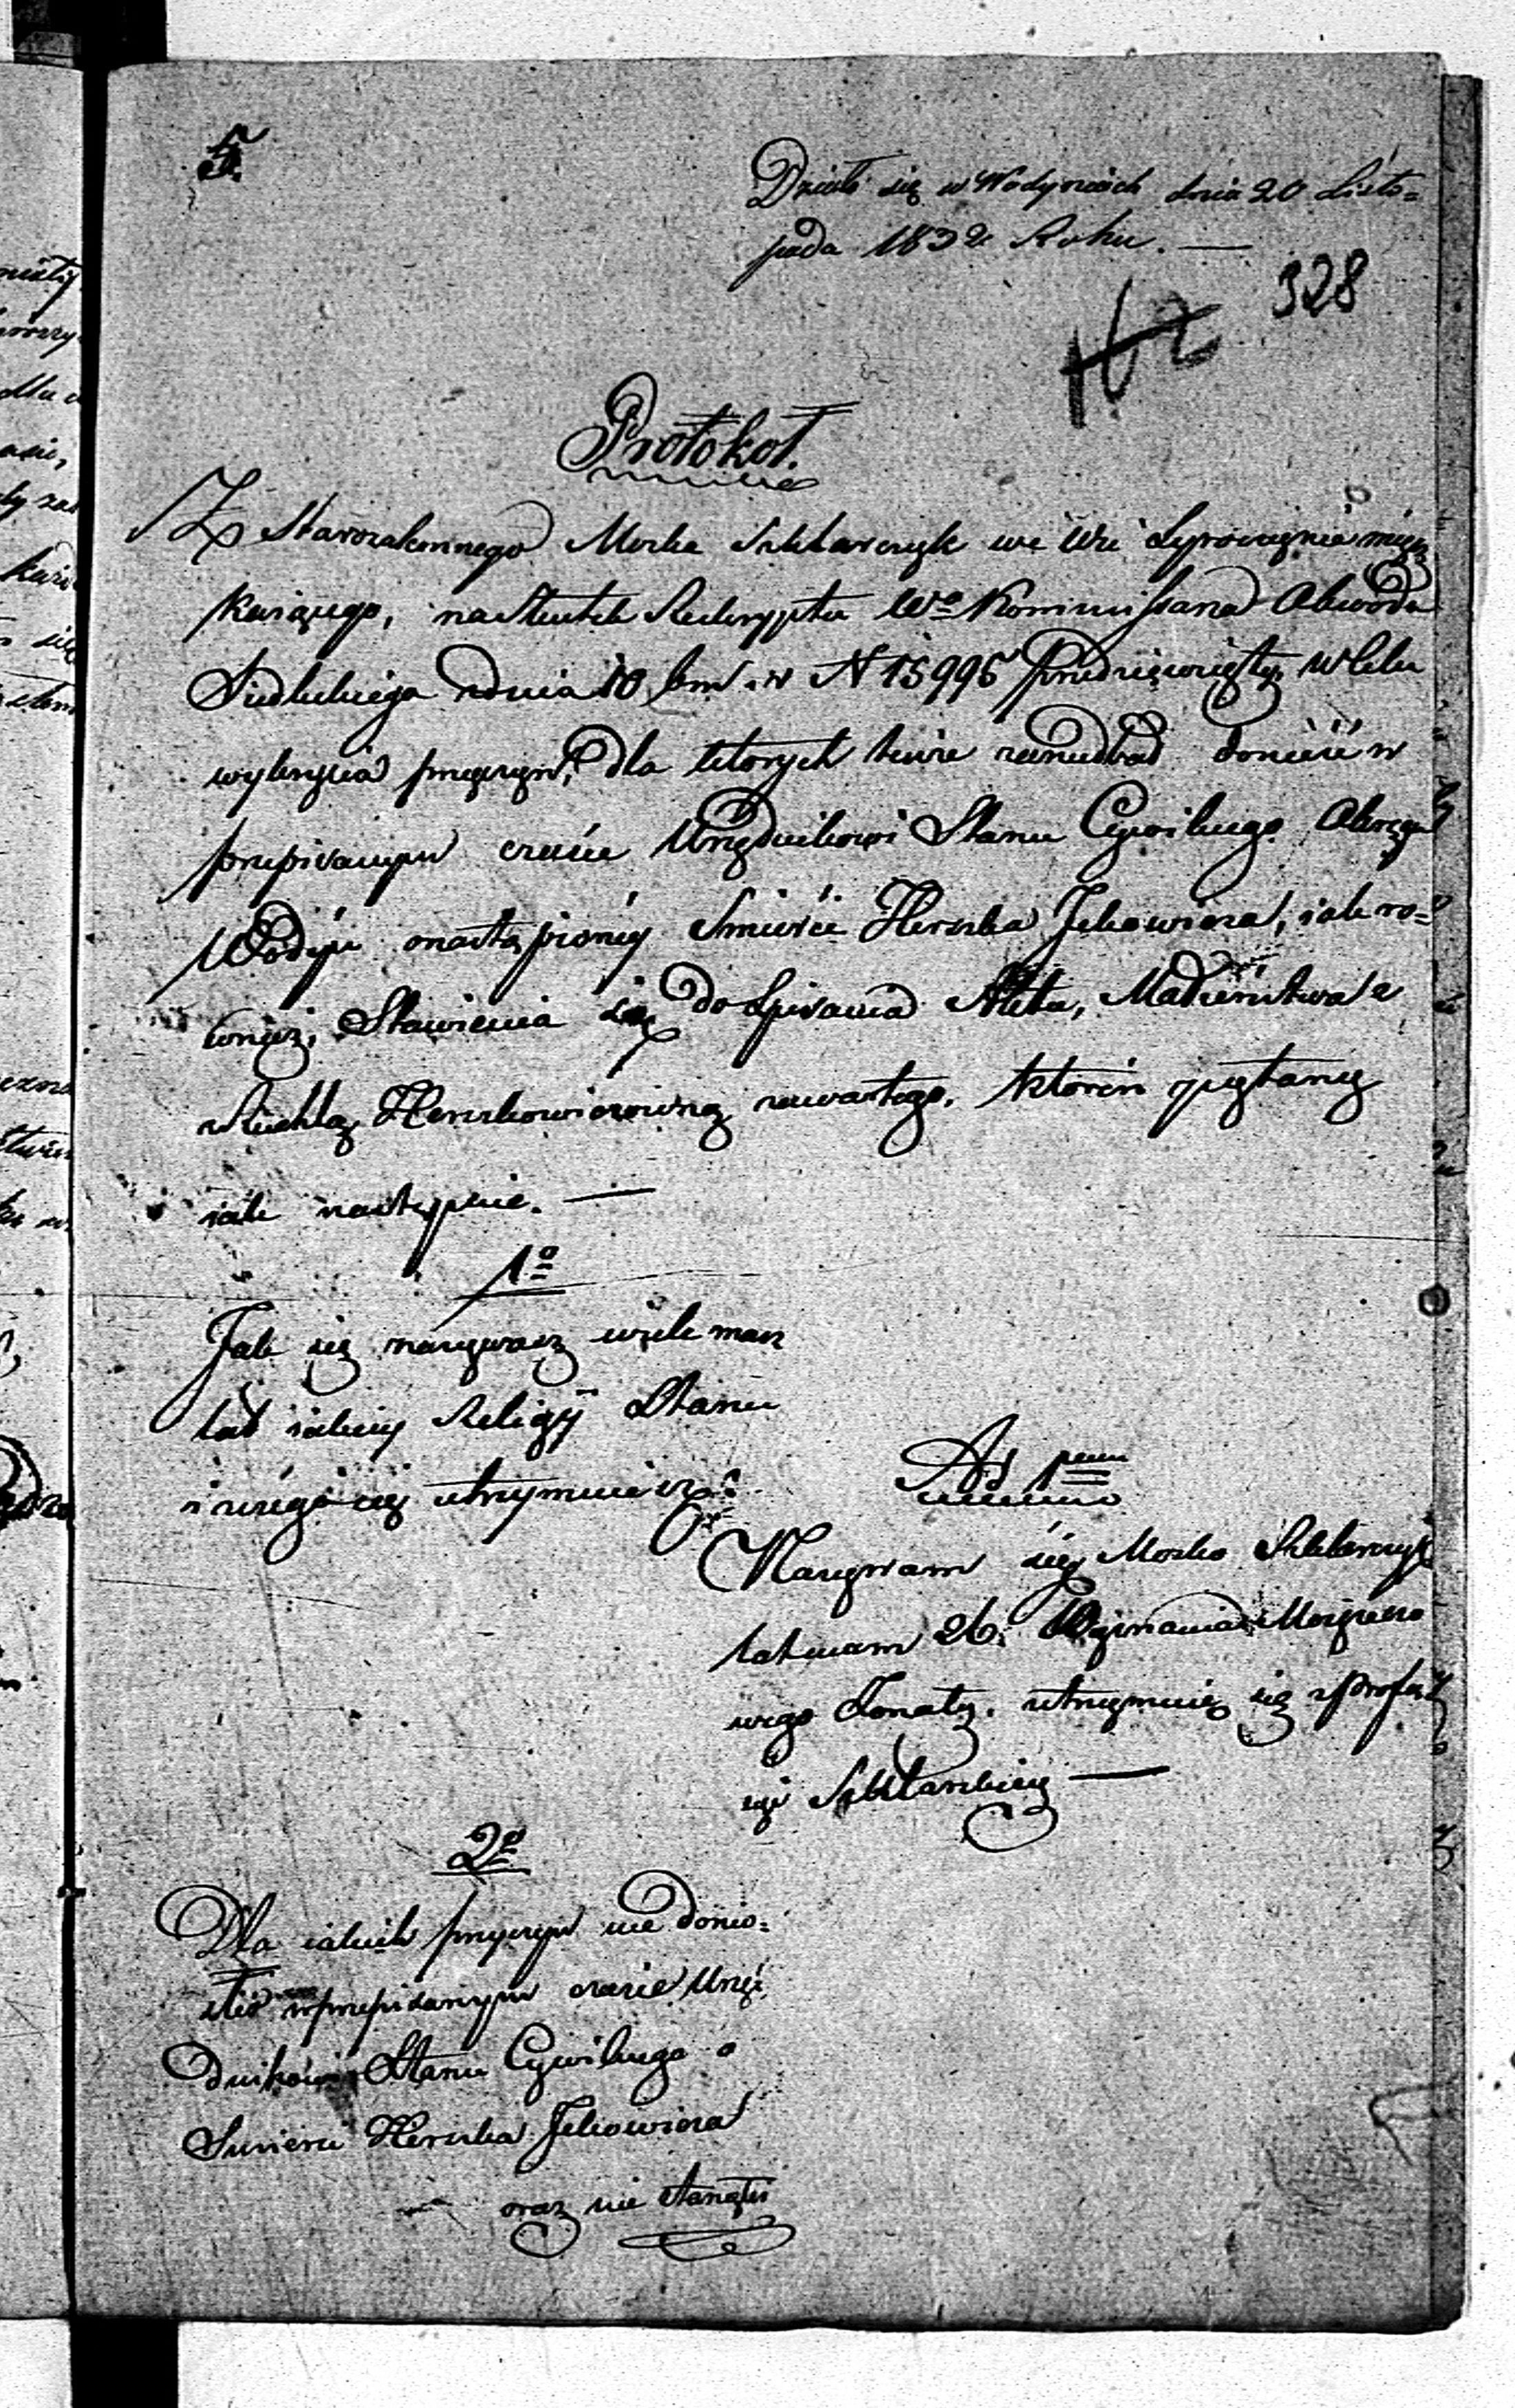 5.
Działo się w Wodyniach dnia 20 Listo=
pada 1832 Roku. —
328
162
Protokół.
Z Starozakonnego Moska Szklarczyk we Wsi miesz
kaiącego, na skutek Reskryptu Wo Kommissarza Obwodu
Siedleckiego z dnia 10 b m r N 15995 przedsięwzięty, w Celu
wykrycia przyczyn, dla których tenże zaniedbał donieść w
przepisanym czasie Urzędnikowi Stanu Cywilnego Okręgu
Wodyń o nastąpioney Smierci Herszka Jckowicza, iak ro=
wnież, Stawienia się do Spisania Aktu, Małżeństwa z
Ruchlą Herszkowiczowną zawartego, który zpytany
iak następuie. —
1o
Jak się nazywasz wiele masz
lat iakiey Religij Stanu
i z czego się utrzymuiesz?
Ad 1mum
Nazywam się Mosko Szklarczyk
lat mam 26. Wyznania Moyżeszo
wego Żonaty, utrzymuię się z Profes
syi Szklarskiey —
2o
Dla iakich przyczyn nie donio=
słeś w przepisanym czasie Urzę
dnikowi Stanu Cywilnego o
Smierci Herszka Jckowicza
oraz nie stanąłeś